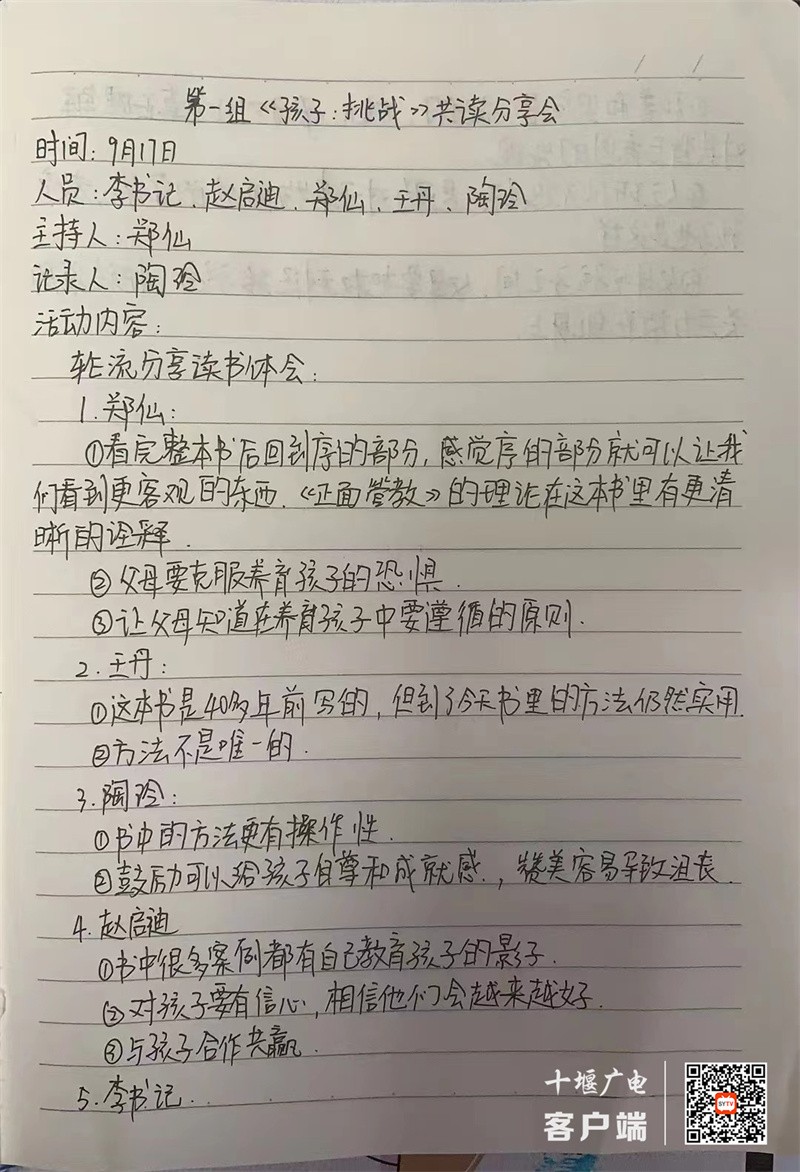 第一组《孩子:挑战》共读分享会
时间:9月17日
人员:李书记、赵启迪、郑仙、王丹、陶玲
主持人:郑仙
记录人:陶玲
活动内容:
轮流分享读书体会:
1.郑仙:
①看完整本书后回到序的部分,感觉序的部分就可以让我
们看到更客观的东西.《正面管教》的理论在这本书里有更清
晰的诠释.
②父母要克服养育孩子的恐惧.
③让父母知道在养育孩子中要遵循的原则.
2.王丹:
①这本书是40多年前写的,但到了今天书里的方法仍然实用.
②方法不是唯一的.
3.陶玲:
①书中的方法更有操作性.
②鼓励可以给孩子自尊和成就感.,赞美容易导致沮丧.
4.赵启迪
①书中很多案例都有自己教育孩子的影子.
②对孩子要有信心,相信他们会越来越好.
③与孩子合作共赢.
5.李书记.
十堰广电
客户端
SYTV